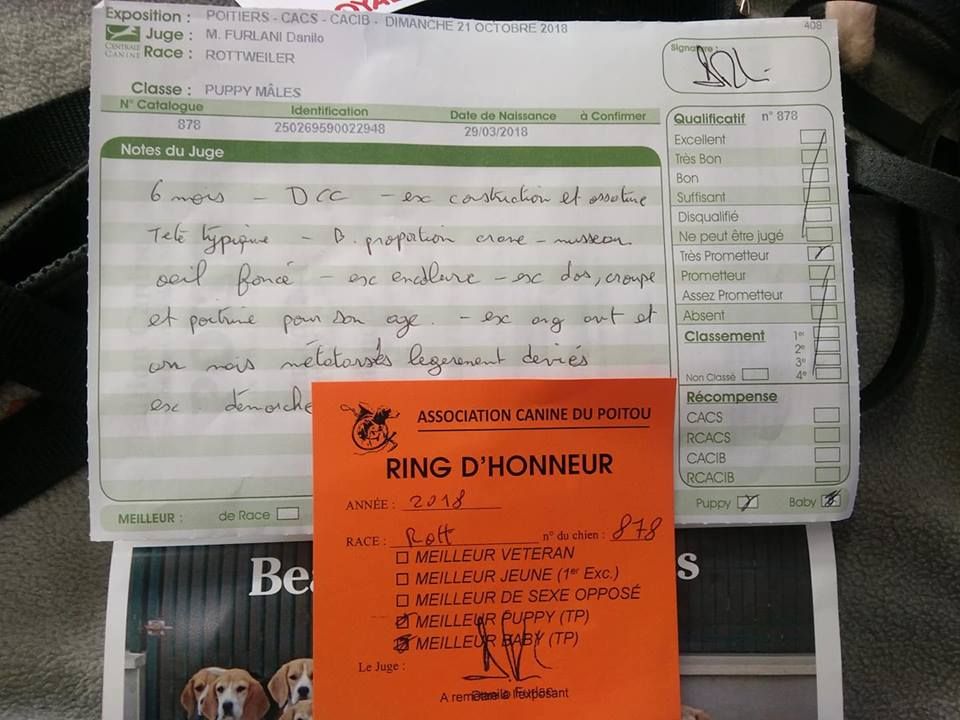 Exposition : POITIERS - CACS - CACIB - DIMANCHE 21 OCTOBRE 2018
408
CENTRALE CANINE
Juge : M. FURLANI Danilo
Race : ROTTWEILER
Signature :
Classe : PUPPY MÂLES
N° Catalogue Identification Date de Naissance à Confirmer
878 250269590022948 29/03/2018
Notes du Juge
6 mois - DCC - ex construction et ossature
Tete typique - B. proportion crane - museau
oeil foncé - exc encolure - exc dos, croupe
et poitrine pour son age. - exc ang avt et
arr mais métatarses legerement deviés
exc. démarche
Qualificatif n° 878
Excellent
Très Bon
Bon
Suffisant
Disqualifié
Ne peut être jugé
Très Prometteur
Prometteur
Assez Prometteur
Absent
Classement 1er
2e
3e
Non Classé 4e
Récompense
CACS
RCACS
CACIB
RCACIB
Puppy Baby
MEILLEUR : de Race
ASSOCIATION CANINE DU POITOU
RING D'HONNEUR
ANNÉE : 2018
RACE : Rott n° du chien : 878
MEILLEUR VETERAN
MEILLEUR JEUNE (1er Exc.)
MEILLEUR DE SEXE OPPOSÉ
MEILLEUR PUPPY (TP)
MEILLEUR BABY (TP)
Le Juge :
A remettre à l'exposant
Bea
s